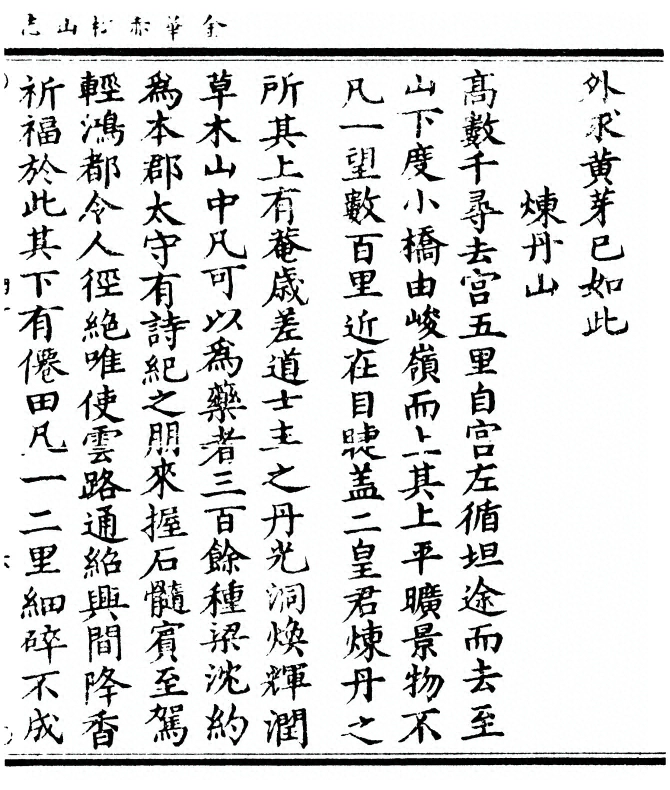 金華赤松山志
外求黄芽已如此
煉丹山
髙數千尋去宫五里自宫左循坦途而去至
山下度小橋由峻嶺而上其上平曠景物不
凡一望數百里近在目睫盖二皇君煉丹之
所其上有菴歳差道士主之丹光洞煥輝潤
草木山中凡可以爲藥者三百餘種梁沈約
爲本郡太守有詩紀之朋來握石髓賔至駕
輕鴻都令人徑絶唯使雲路通紹興間降香
祈福於此其下有僊田凡一二里細碎不成